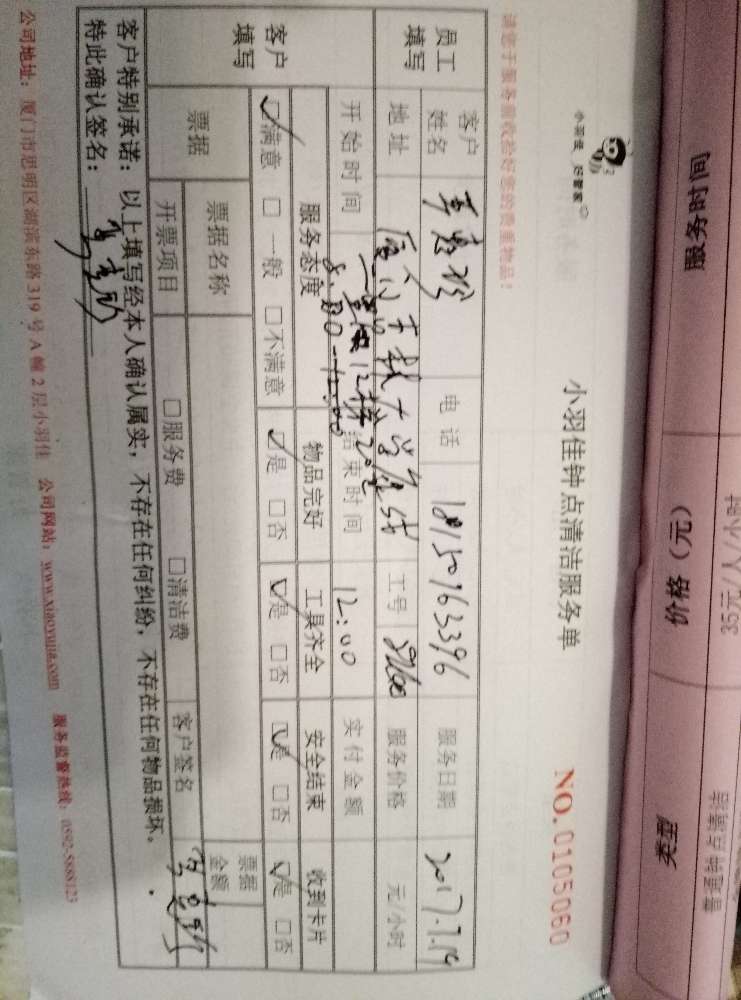 服务时间 价格（元） 类型
35元/人/小时 普通钟点清洁
小羽佳 好管家
小羽佳钟点清洁服务单 NO.0105060
请您于服务前收拾好您的贵重物品！
员工填写 客户姓名 电话 18150963396 服务日期 2017.7.14
地址 厦门 工号 服务价格 元/小时
开始时间 8:00-12:00 结束时间 12:00 实付金额
客户填写 服务态度 物品完好 工具齐全 安全结束 收到卡片
☑满意 □一般 □不满意 ☑是 □否 ☑是 □否 ☑是 □否 ☑是 □否
票据 票据名称 票据金额
开票项目 □服务费 □清洁费 客户签名
客户特别承诺：以上填写经本人确认属实，不存在任何纠纷，不存在任何物品损坏。
特此确认签名：
公司地址：厦门市思明区湖滨东路319号A幢2层小羽佳 公司网站：www.xiaoyujia.com 服务监督热线：0592-5888123